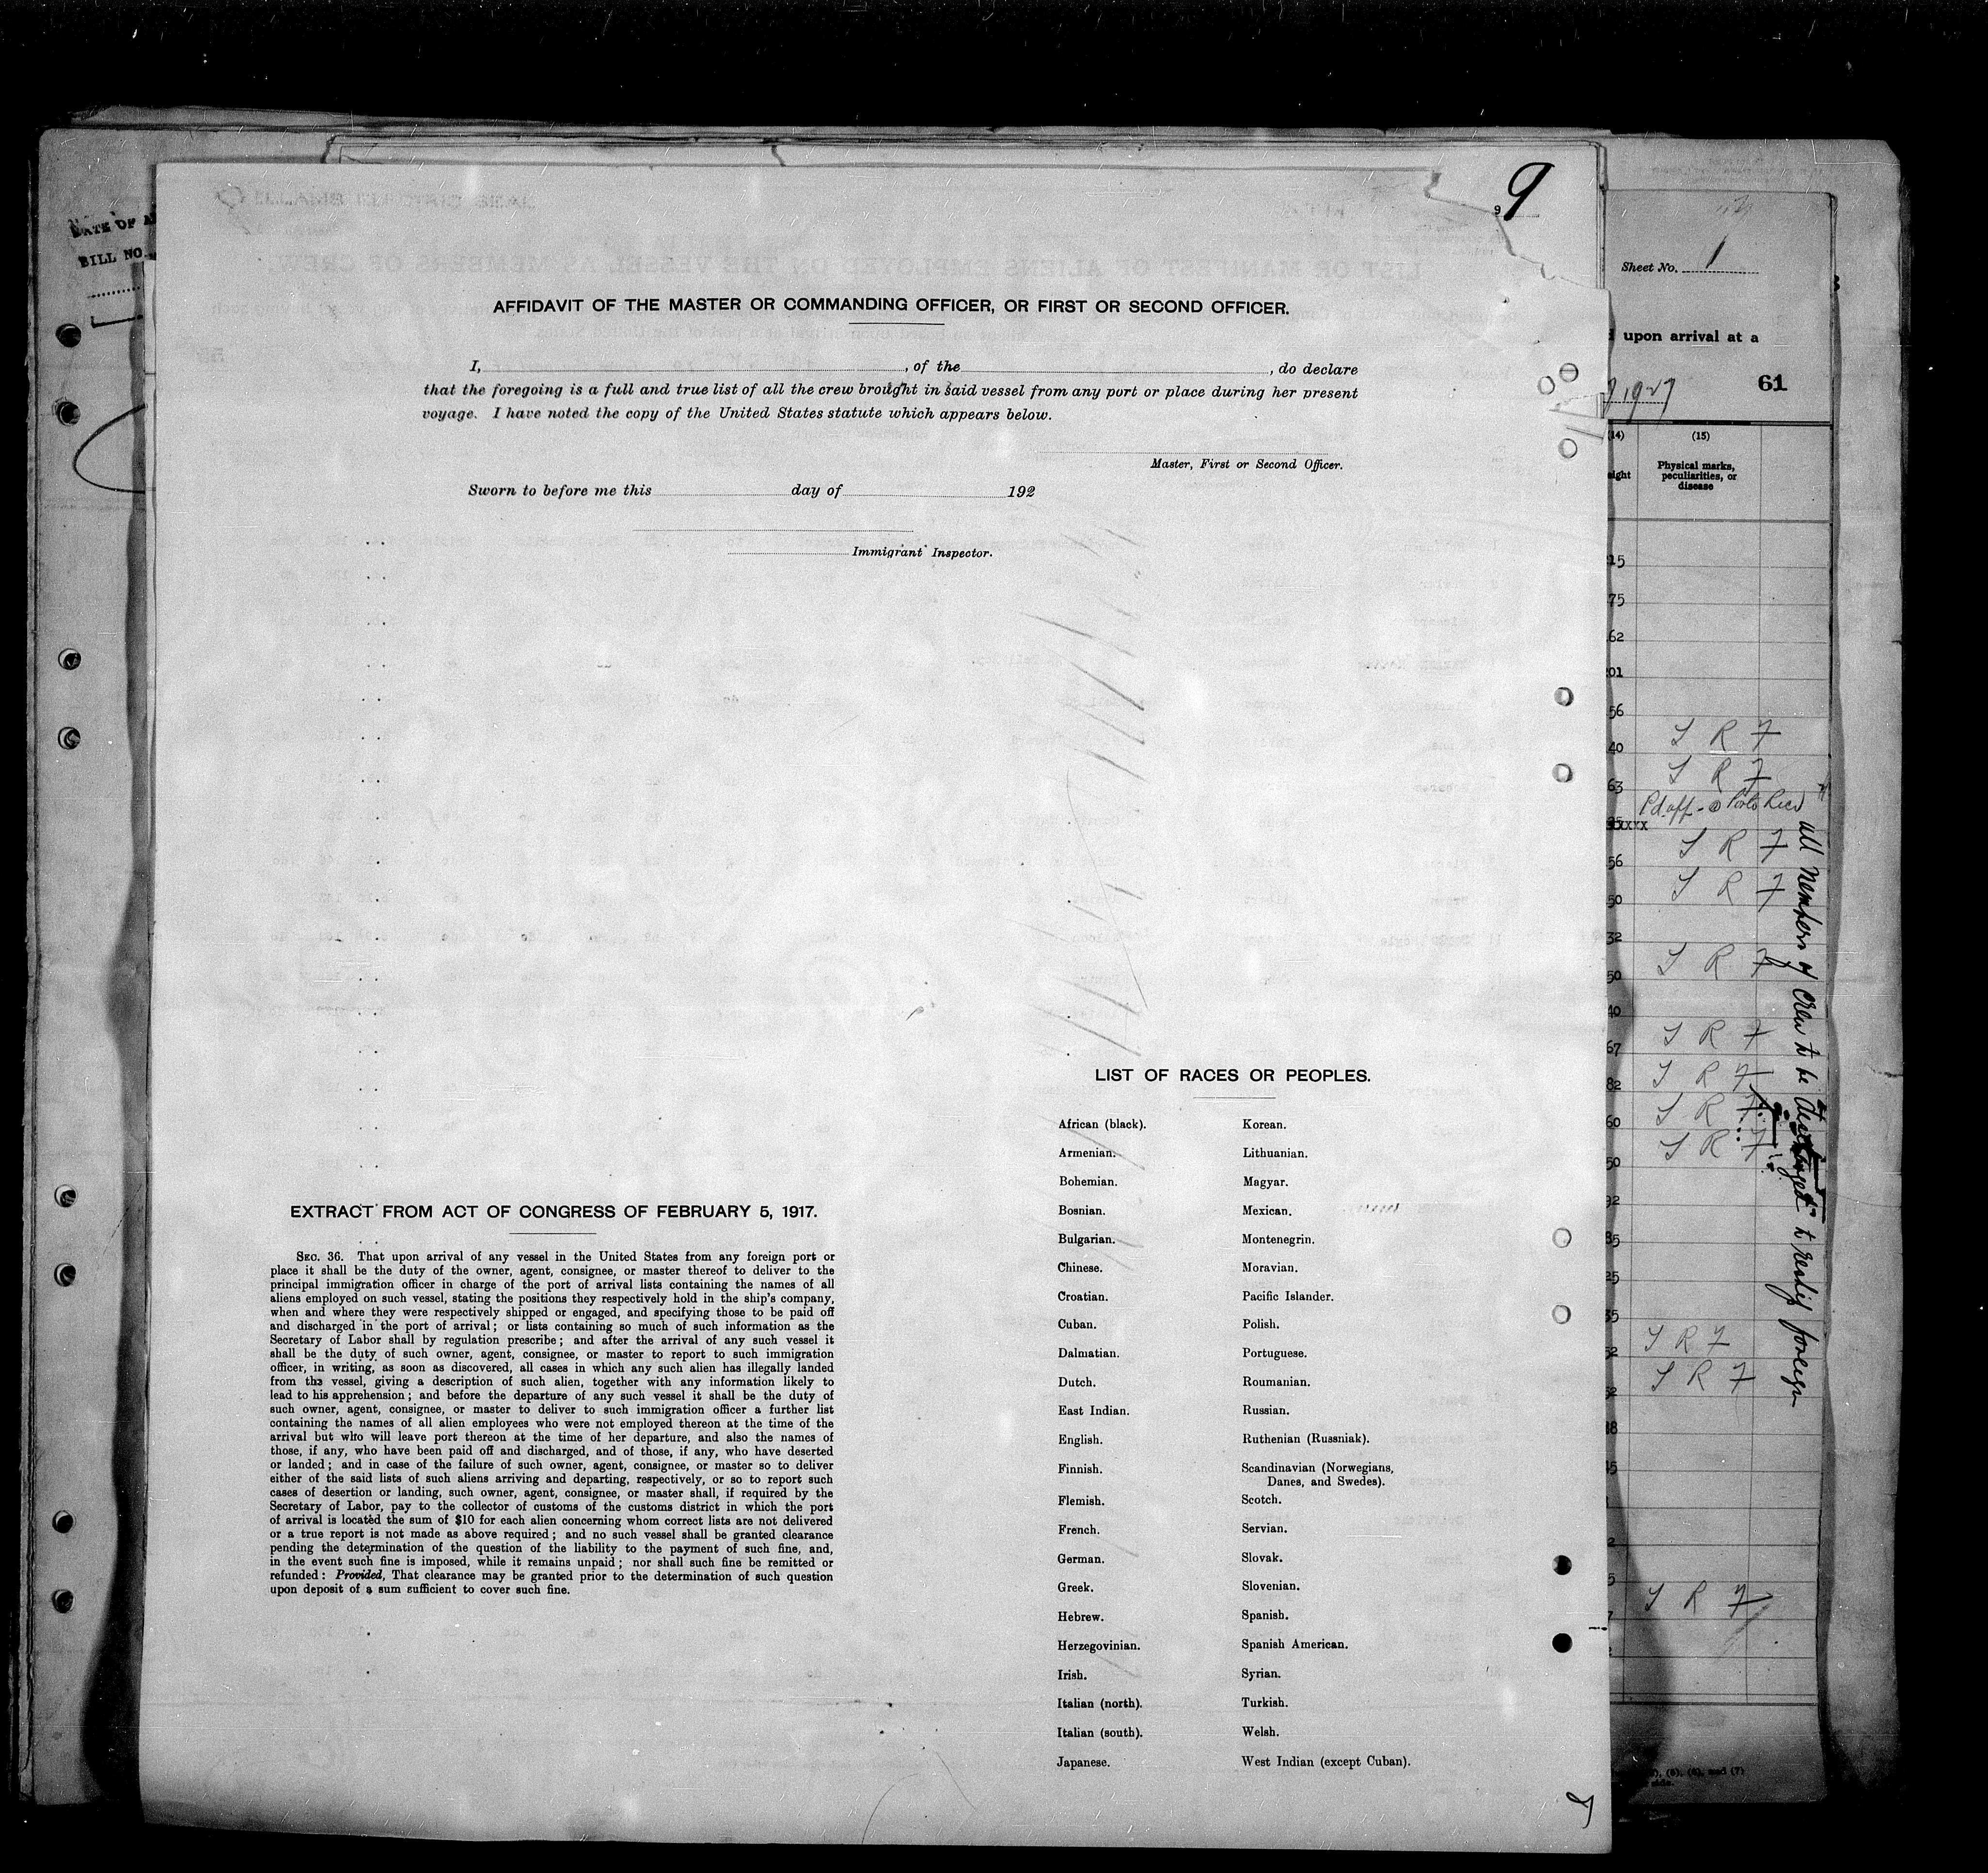 DATE OF
BILL NO.
9
9
AFFIDAVIT OF THE MASTER OR COMMANDING OFFICER, OR FIRST OR SECOND OFFICER.
I, , of the , do declare
that the foregoing is a full and true list of all the crew brought in said vessel from any port or place during her present
voyage. I have noted the copy of the United States statute which appears below.
Master, First or Second Officer.
Sworn to before me this day of 192
Immigrant Inspector.
EXTRACT FROM ACT OF CONGRESS OF FEBRUARY 5, 1917.
SEC. 36. That upon arrival of any vessel in the United States from any foreign port or
place it shall be the duty of the owner, agent, consignee, or master thereof to deliver to the
principal immigration officer in charge of the port of arrival lists containing the names of all
aliens employed on such vessel, stating the positions they respectively hold in the ship's company,
when and where they were respectively shipped or engaged, and specifying those to be paid off
and discharged in the port of arrival; or lists containing so much of such information as the
Secretary of Labor shall by regulation prescribe; and after the arrival of any such vessel it
shall be the duty of such owner, agent, consignee, or master to report to such immigration
officer, in writing, as soon as discovered, all cases in which any such alien has illegally landed
from the vessel, giving a description of such alien, together with any information likely to
lead to his apprehension; and before the departure of any such vessel it shall be the duty of
such owner, agent, consignee, or master to deliver to such immigration officer a further list
containing the names of all alien employees who were not employed thereon at the time of the
arrival but who will leave port thereon at the time of her departure, and also the names of
those, if any, who have been paid off and discharged, and of those, if any, who have deserted
or landed; and in case of the failure of such owner, agent, consignee, or master so to deliver
either of the said lists of such aliens arriving and departing, respectively, or so to report such
cases of desertion or landing, such owner, agent, consignee, or master shall, if required by the
Secretary of Labor, pay to the collector of customs of the customs district in which the port
of arrival is located the sum of $10 for each alien concerning whom correct lists are not delivered
or a true report is not made as above required; and no such vessel shall be granted clearance
pending the determination of the question of the liability to the payment of such fine, and,
in the event such fine is imposed, while it remains unpaid; nor shall such fine be remitted or
refunded: Provided, That clearance may be granted prior to the determination of such question
upon deposit of a sum sufficient to cover such fine.
LIST OF RACES OR PEOPLES.
African (black). Korean.
Armenian. Lithuanian.
Bohemian. Magyar.
Bosnian. Mexican.
Bulgarian. Montenegrin.
Chinese. Moravian.
Croatian. Pacific Islander.
Cuban. Polish.
Dalmatian. Portuguese.
Dutch. Roumanian.
East Indian. Russian.
English. Ruthenian (Russniak).
Finnish. Scandinavian (Norwegians,
Danes, and Swedes).
Flemish. Scotch.
French. Servian.
German. Slovak.
Greek. Slovenian.
Hebrew. Spanish.
Herzegovinian. Spanish American.
Irish. Syrian.
Italian (north). Turkish.
Italian (south). Welsh.
Japanese. West Indian (except Cuban).
Sheet No. 1
upon arrival at a
1927
61
(14) (15)
Physical marks,
peculiarities, or
disease
S R F
S R F
Pd. off - @ Porto Rico
S R F
S R F
S R F
S R F
S R F
S R F
S R F
S R F
S R F
S R F
all members of crew to be foreign
(5), (6), and (7)
side.